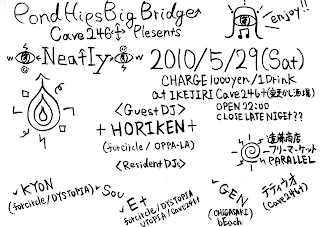 Pond Hips Big Bridge
Cave246 Presents
enjoy!!
Neatly
2010/5/29(Sat)
CHARGE 1000yen/1Drink
at IKEJIRI Cave246
OPEN 22:00
CLOSE LATE NIGHT??
<Guest DJ>
+ HORIKEN +
(forcircle / OPPA-LA)
<Resident DJs>
遠藤商店
フリーマーケット
PARALLEL
KYON
(forcircle/DYSTOPIA)
Sou
E+
forcircle/DYSTOPIA
UTOPIA/Cave246
GEN
(CHIGASAKI)
bEach
(Cave246)